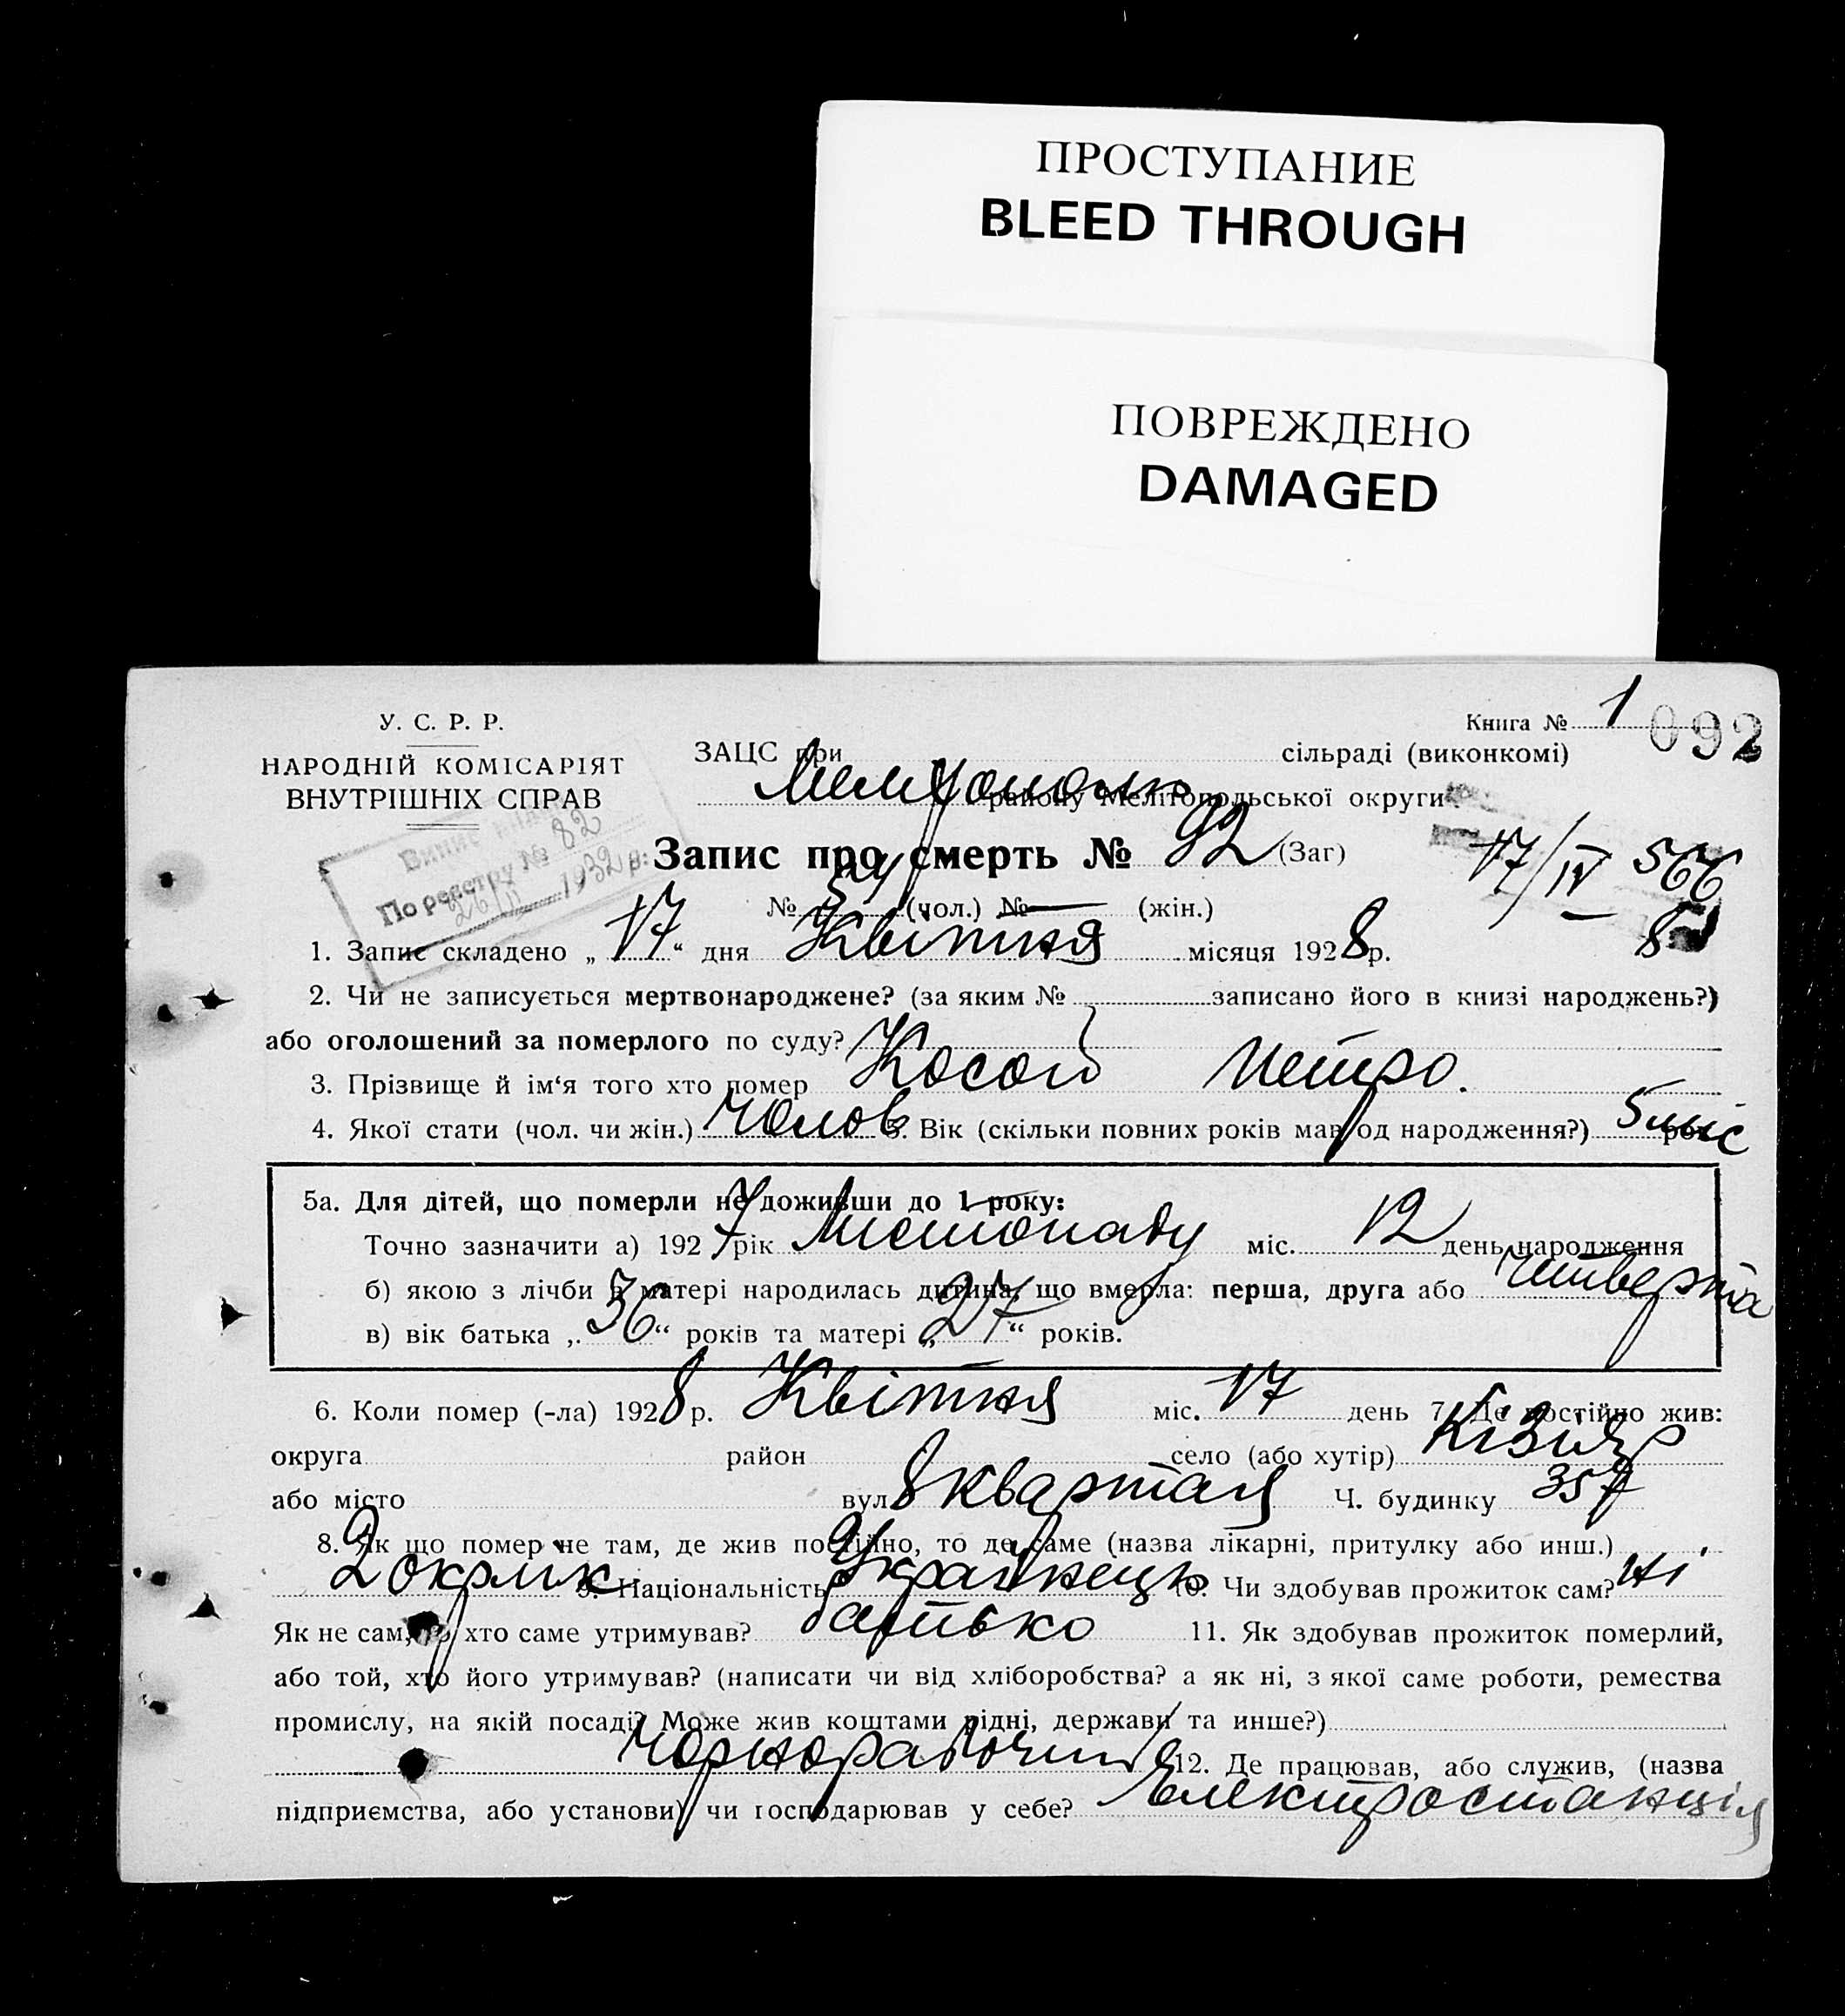 ПРОСТУПАНИЕ
BLEED THROUGH
ПОВРЕЖДЕНО
DAMAGED
У. С. Р. Р.
НАРОДНІЙ КОМІСАРІЯТ
ВНУТРІШНІХ СПРАВ
Книга № 1
092
ЗАЦС при сільраді (виконкомі)
району Мелітопольської округи
По реєстру № 82
26/II 1932 р.
Запис про смерть № 92 (Заг)
17/IV 566
№ 54 (чол.) № — (жін.)
8
1. Запис складено „ 17 “ дня Квітня місяця 1928 р.
2. Чи не записується мертвонароджене? (за яким № записано його в книзі народжень?)
або оголошений за померлого по суду?
3. Прізвище й ім‘я того хто помер Косой Петро.
4. Якої стати (чол. чи жін.) Чолов 5. Вік (скільки повних років мав од народження?) 5 міс
5а. Для дітей, що померли не доживши до 1 року:
Точно зазначити а) 1927 рік Листопаду міс. 12 день народження
б) якою з лічби в матері народилась дитина, що вмерла: перша, друга або четверта
в) вік батька „ 36 “ років та матері „ 27 “ років.
6. Коли помер (-ла) 1928 р. Квітня міс. 17 день 7. Де постійно жив:
округа район село (або хутір) Кізіяр
або місто вул 8 квартал Ч. будинку 357
8. Як що помер не там, де жив постійно, то де саме (назва лікарні, притулку або инш.)
2 окрлік 9. Національність Українець 10. Чи здобував прожиток сам? ні
Як не сам, то хто саме утримував? батько 11. Як здобував прожиток померлий,
або той, хто його утримував? (написати чи від хліборобства? а як ні, з якої саме роботи, ремества
промислу, на якій посаді? Може жив коштами рідні, держави та инше?)
Чорнорабочий 12. Де працював, або служив, (назва
підприємства, або установи) чи господарював у себе? Електростанція